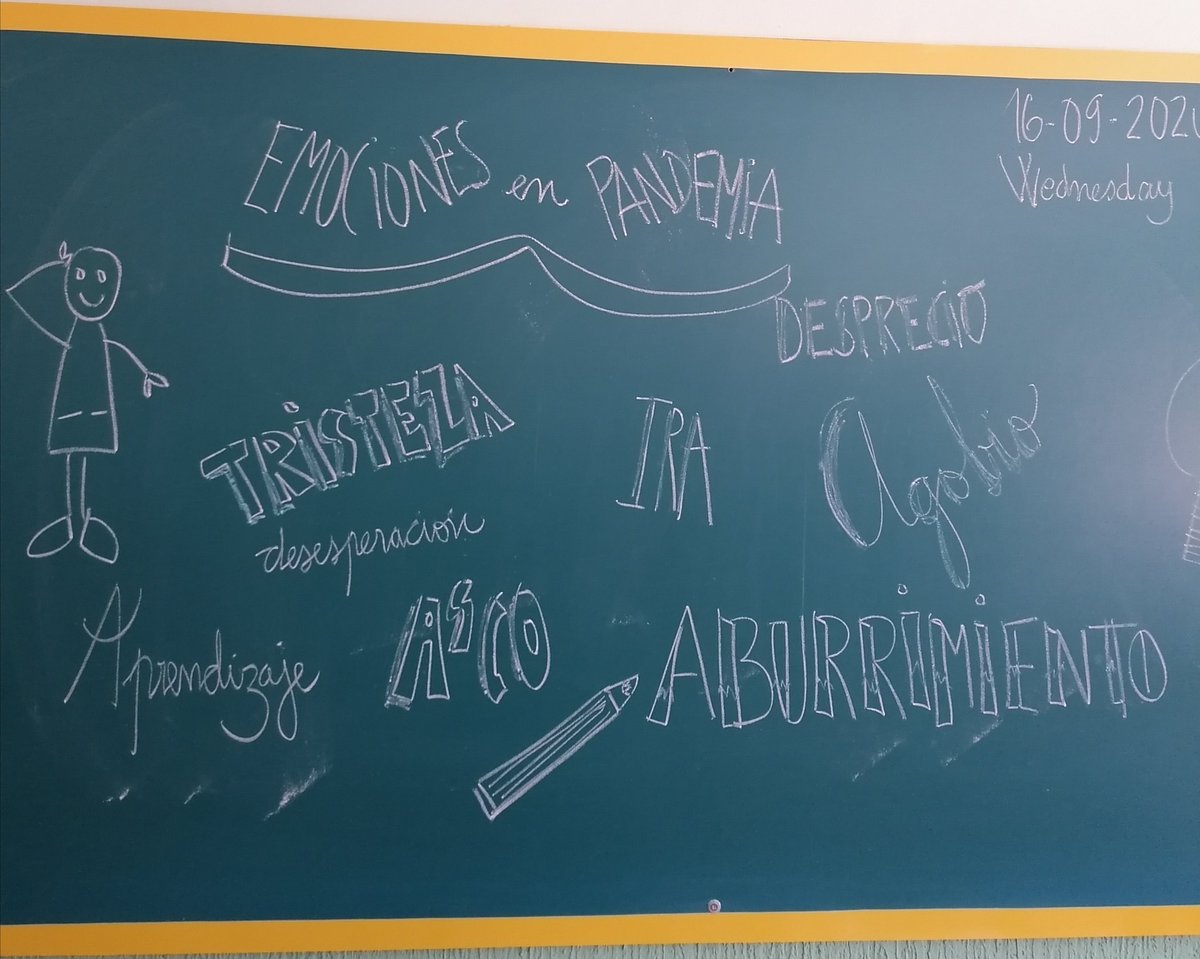 16-09-2020
Wednesday
EMOCiONES en PANDEMiA
DESPRECiO
TRiSTEZA
IRA
Agobio
desesperación
Aprendizaje
ASCO
ABURRiMiENTO